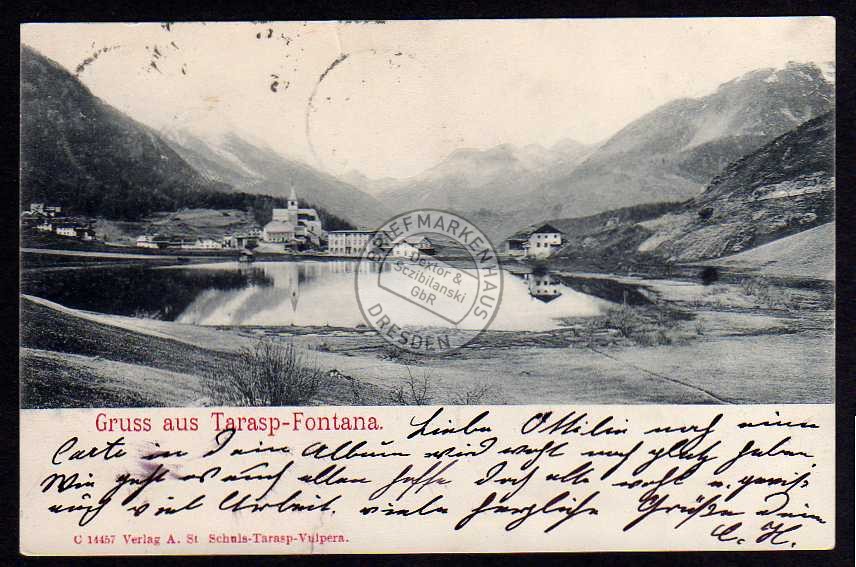 BRIEFMARKENHAUS
Dextor &
Sczibilanski
GbR
DRESDEN
Gruss aus Tarasp-Fontana.
Liebe Ottilie noch eine
Carte in Dein Album wird wohl noch platz haben
Wie geht es auch allen hoffe doch alle wohl u. gewiß
auch viel Arbeit. viele herzliche Grüße Dein
C. H.
C 14457 Verlag A. St Schuls-Tarasp-Vulpera.